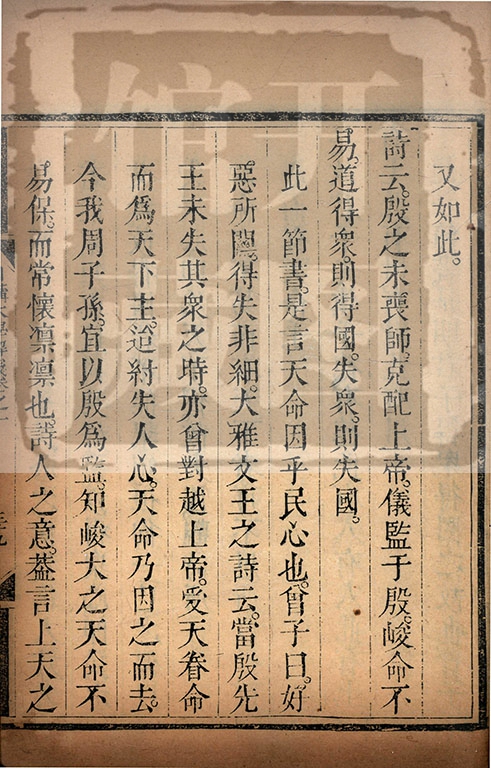 又如此。
詩云。殷之未喪師。克配上帝。儀監于殷。峻命不
易。道得衆。則得國。失衆。則失國。
此一節書。是言天命因乎民心也。曾子曰。好
惡所關。得失非細。大雅文王之詩云。當殷先
王未失其衆之時。亦曾對越上帝。受天眷命
而爲天下主。迨紂失人心。天命乃因之而去。
今我周子孫。宜以殷爲監。知峻大之天命不
易保。而常懷凛凛也。詩人之意。蓋言上天之